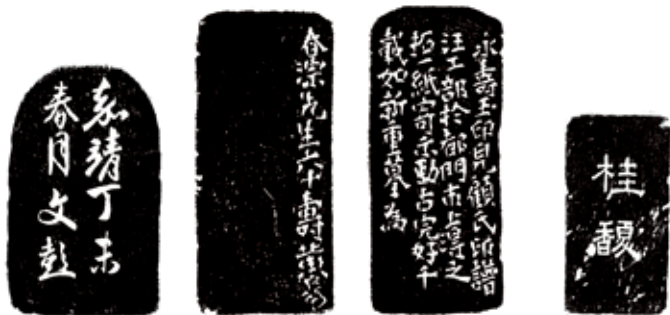 嘉靖丁未
春月文彭
先生六十壽
永壽玉印見顧氏印譜
汪工部於都門市上得之
拓一紙寄示動古完好千
載如新重摹為
桂馥